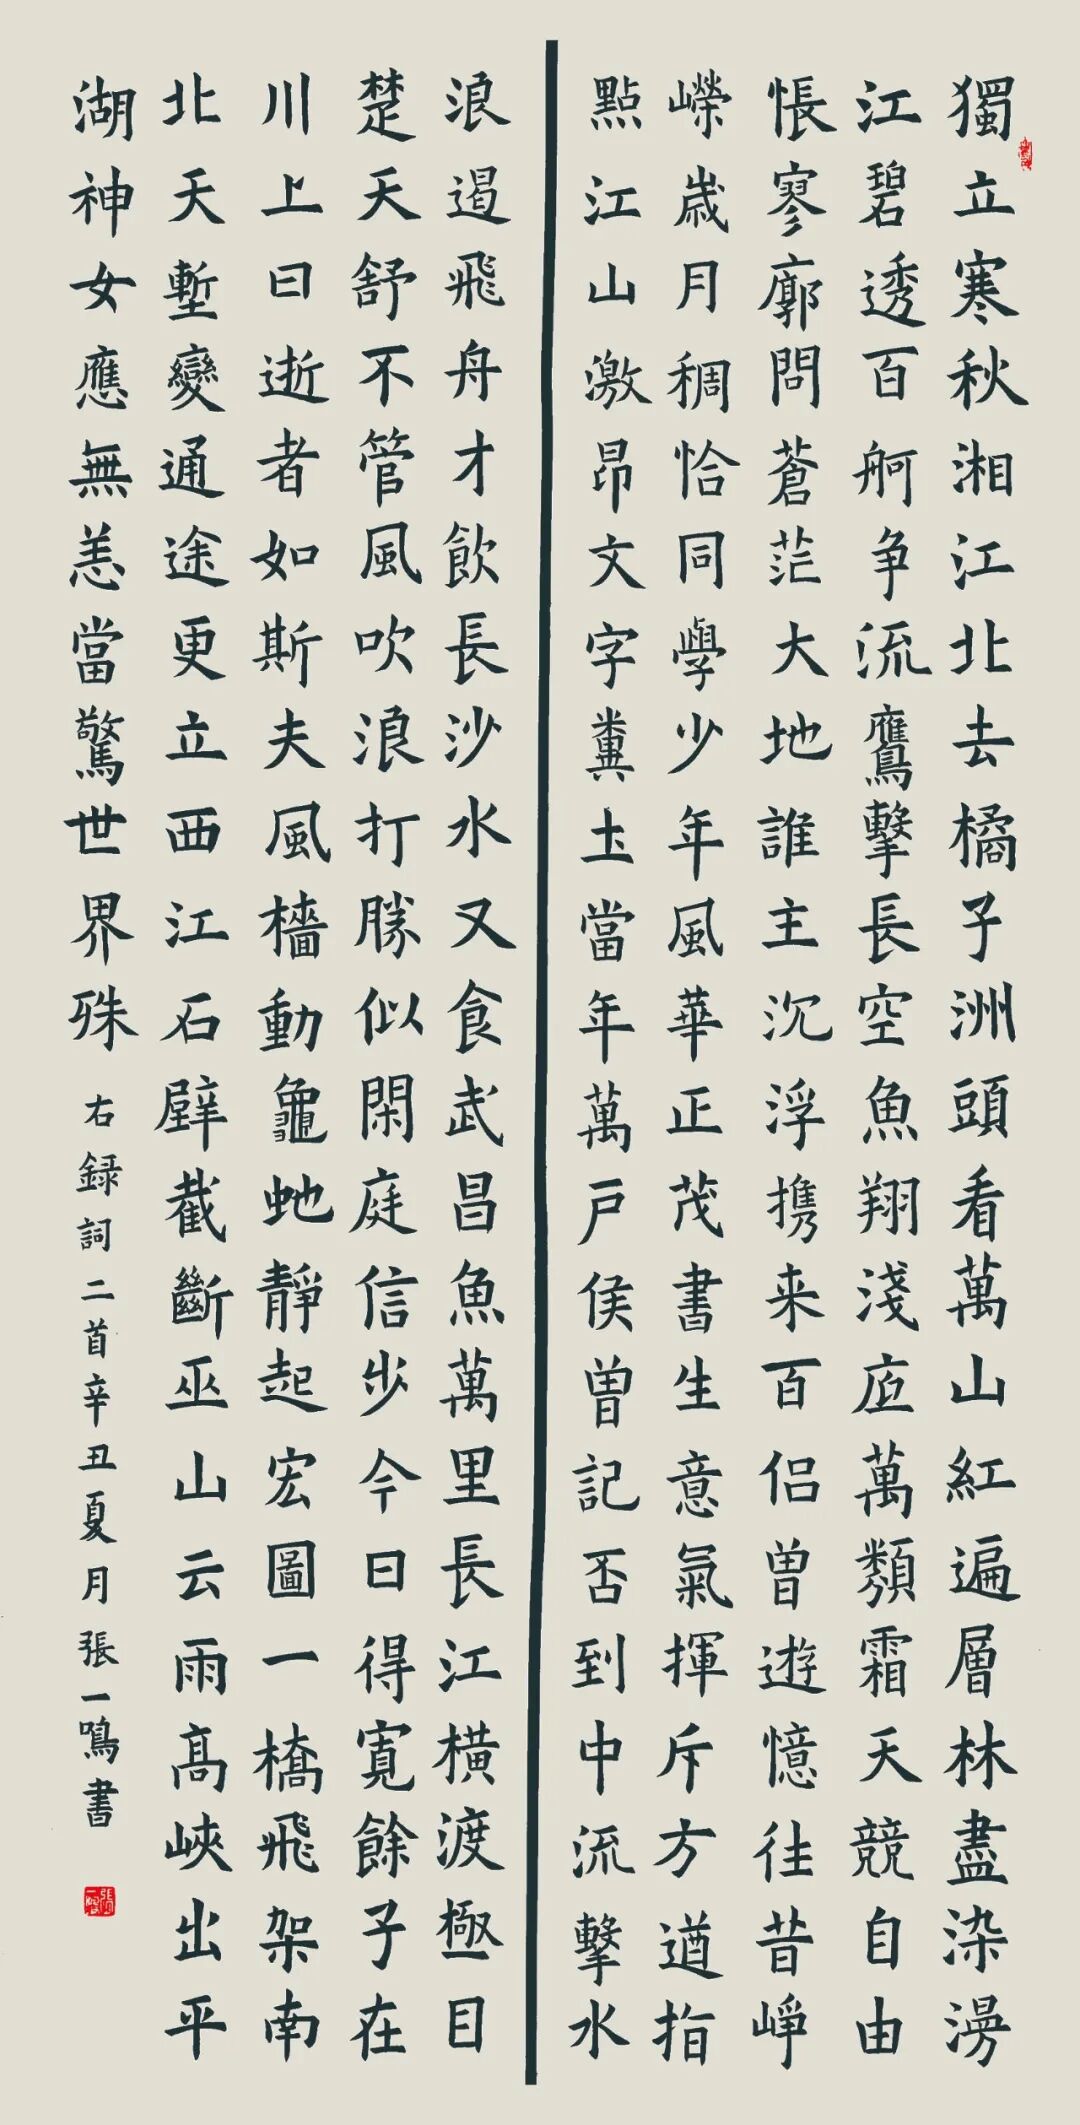 獨立寒秋湘江北去橘子洲頭看萬山紅遍層林盡染漫
江碧透百舸争流鷹擊長空魚翔淺底萬類霜天競自由
悵寥廓問蒼茫大地誰主沉浮携来百侣曾遊憶往昔崢
嶸歲月稠恰同學少年風華正茂書生意氣揮斥方遒指
點江山激昂文字糞土當年萬戶侯曾記否到中流擊水
浪遏飛舟才飲長沙水又食武昌魚萬里長江橫渡極目
楚天舒不管風吹浪打勝似閑庭信步今日得寬餘子在
川上曰逝者如斯夫風檣動龜虵靜起宏圖一橋飛架南
北天塹變通途更立西江石壁截斷巫山云雨高峽出平
湖神女應無恙當驚世界殊右録詞二首辛丑夏月張一鳴書